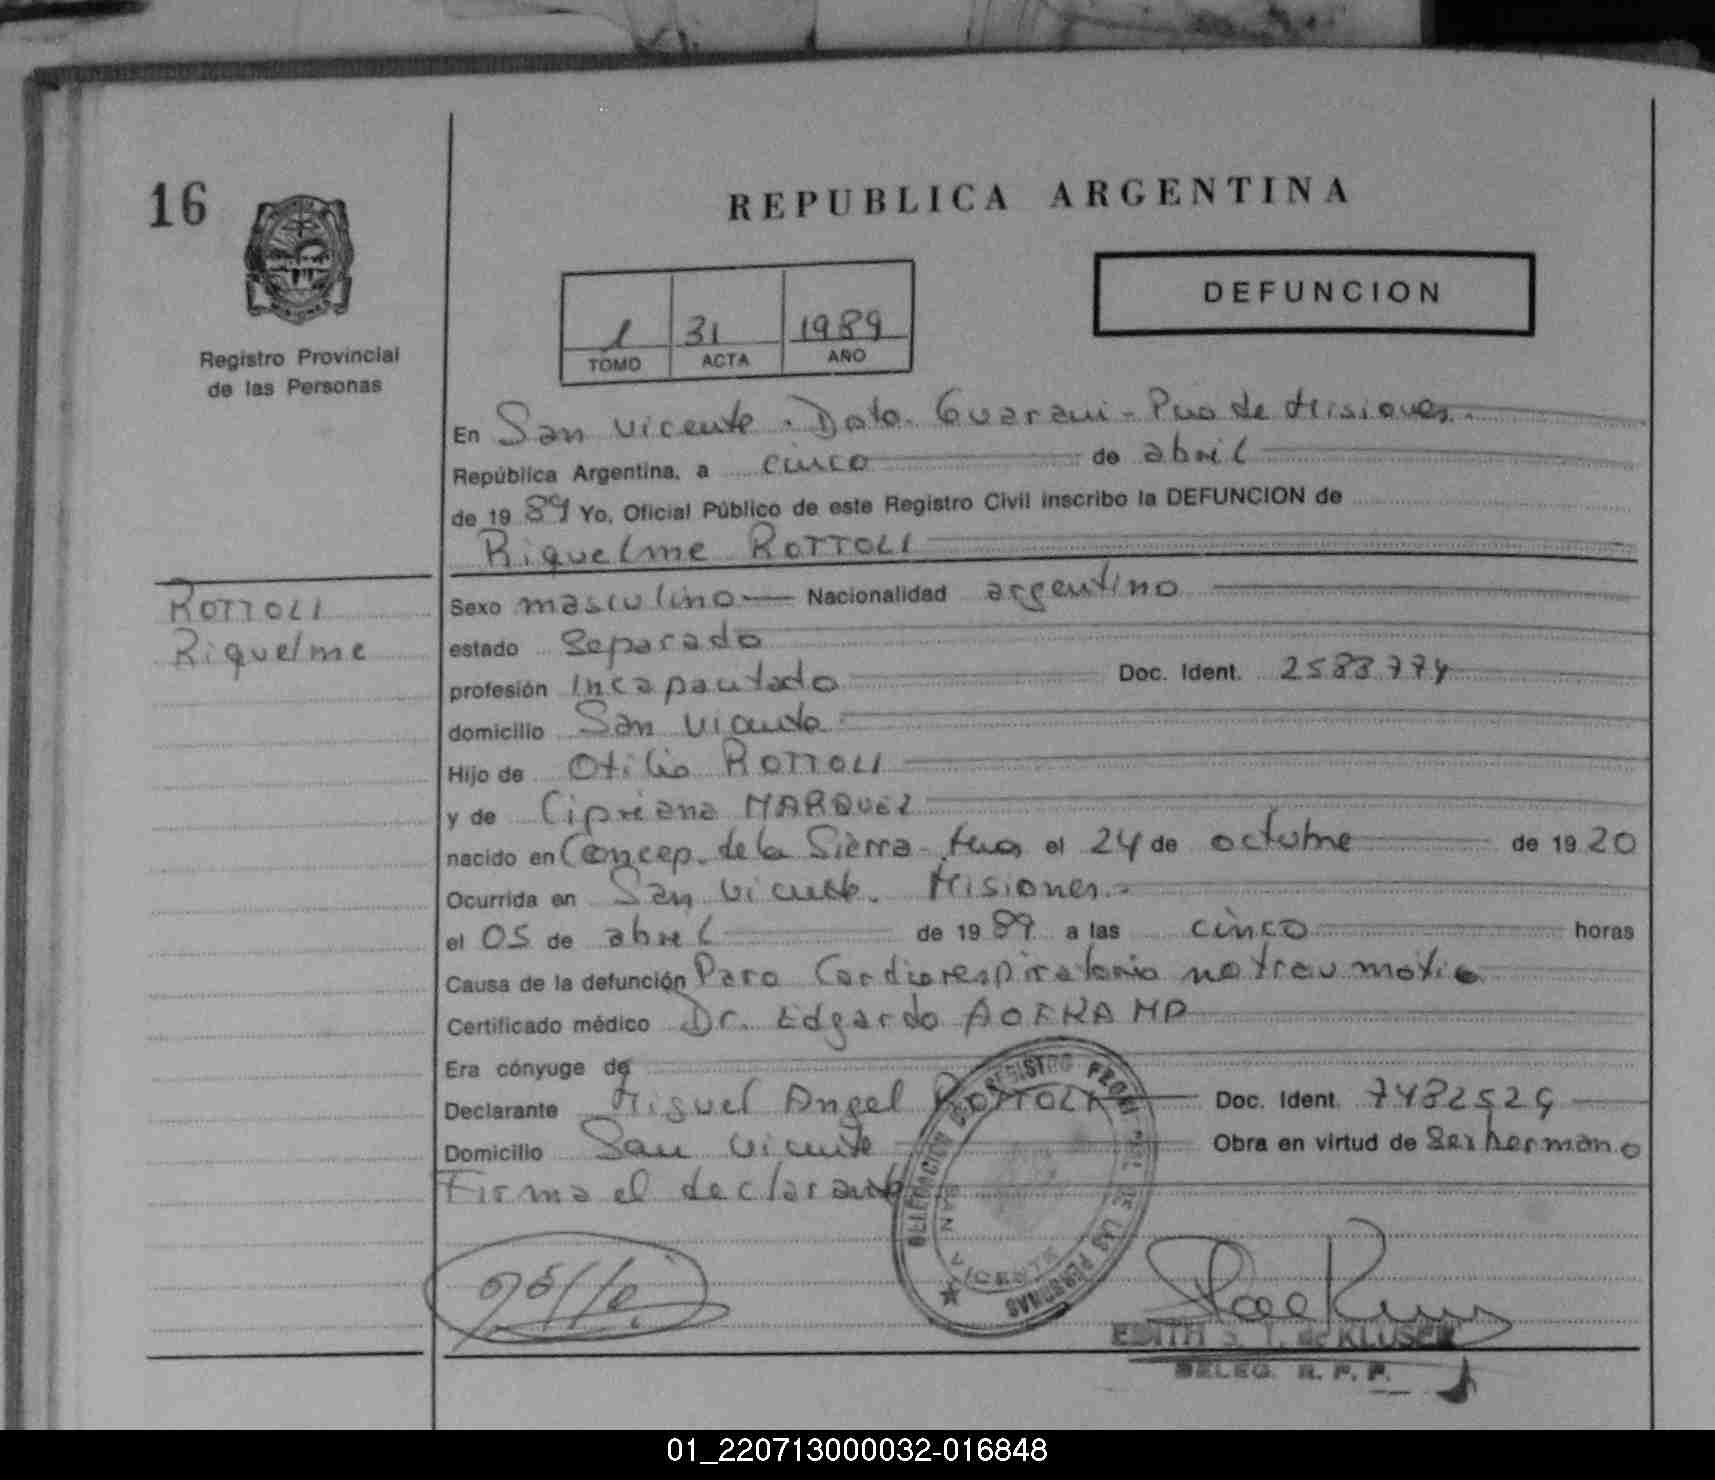 16
REPUBLICA ARGENTINA
DEFUNCION
1 31 1989
TOMO ACTA AÑO
Registro Provincial
de las Personas
En San Vicente. Dpto. Guarani - Pcia de Misiones.
República Argentina, a cinco de abril
de 1989 Yo, Oficial Público de este Registro Civil inscribo la DEFUNCION de
Riquelme ROTTOLI
ROTTOLI
Riquelme
Sexo masculino Nacionalidad argentino
estado Separado
profesión Incapacitado Doc. Ident. 2583774
domicilio San Vicente
Hijo de Otilio ROTTOLI
y de Cipriana MARQUEZ
nacido en Concep. de la Sierra el 24 de octubre de 1920
Ocurrida en San Vicente. Misiones.
el 05 de abril de 1989 a las cinco horas
Causa de la defunción Paro Cardiorespiratorio no traumatico
Certificado médico Dr. Edgardo MP
Era cónyuge de
Declarante Miguel Angel ROTTOLI Doc. Ident. 7482529
Domicilio San Vicente Obra en virtud de Ser hermano
Firma el declarante
DELEGACION DE REGISTRO PROVINCIAL DE LAS PERSONAS
SAN VICENTE
EDITH S. T. de KLUSER
DELEG. R. P. P.
01_220713000032-016848